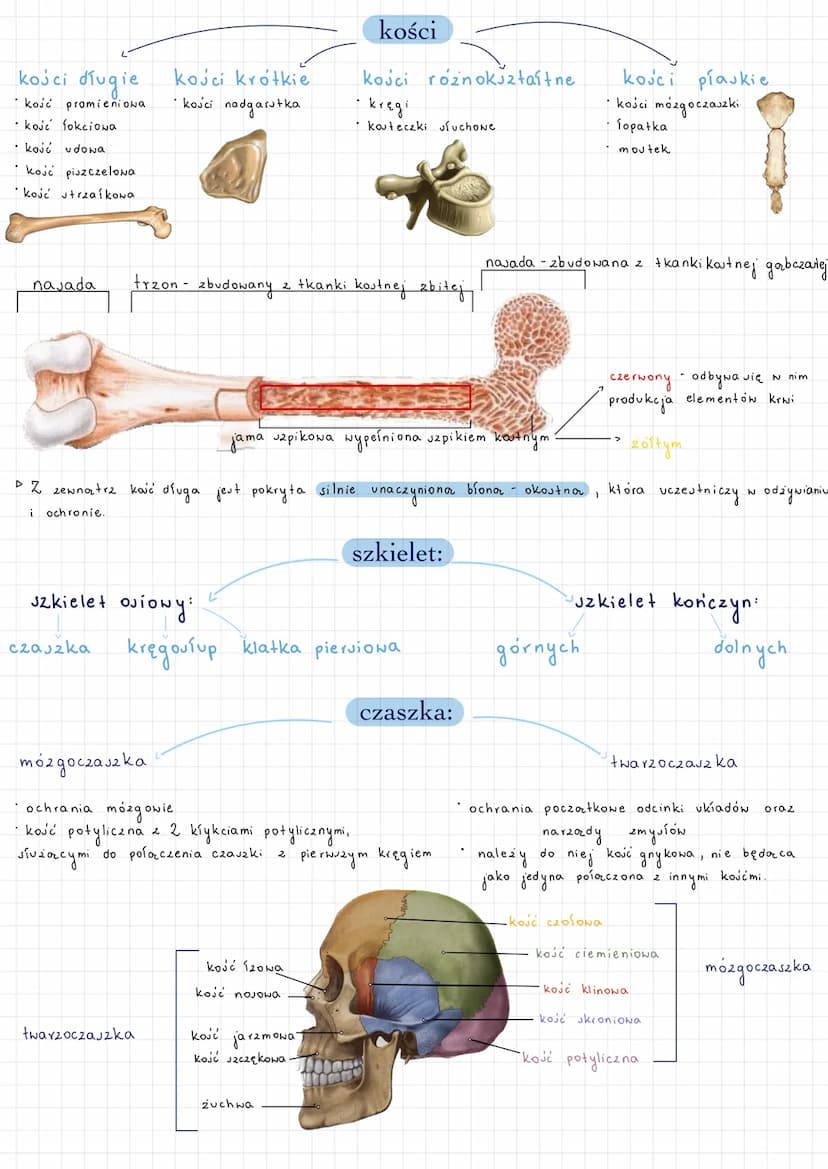 kości
kości długie
• kość promieniowa
• kość łokciowa
• kość udowa
• kość piszczelowa
• kość strzałkowa
kości krótkie
• kości nadgarstka
kości różnokształtne
• kręgi
• kosteczki słuchowe
kości płaskie
• kości mózgoczaszki
• łopatka
• mostek
nasada
trzon - zbudowany z tkanki kostnej zbitej
nasada - zbudowana z tkanki kostnej gąbczastej
czerwony - odbywa się w nim
produkcja elementów krwi
jama szpikowa wypełniona szpikiem kostnym
żółtym
▷ Z zewnątrz kość długa jest pokryta silnie unaczynioną błoną - okostną, która uczestniczy w odżywianiu
i ochronie.
szkielet:
szkielet osiowy:
szkielet kończyn:
czaszka kręgosłup klatka piersiowa
górnych dolnych
czaszka:
mózgoczaszka
• ochrania mózgowie
• kość potyliczna z 2 kłykciami potylicznymi,
służącymi do połączenia czaszki z pierwszym kręgiem
twarzoczaszka
• ochrania początkowe odcinki układów oraz
narządy zmysłów
• należy do niej kość gnykowa, nie będąca
jako jedyna połączona z innymi kośćmi.
kość czołowa
kość ciemieniowa
kość klinowa
kość skroniowa
kość potyliczna
mózgoczaszka
kość łzowa
kość nosowa
kość jarzmowa
kość szczękowa
żuchwa
twarzoczaszka